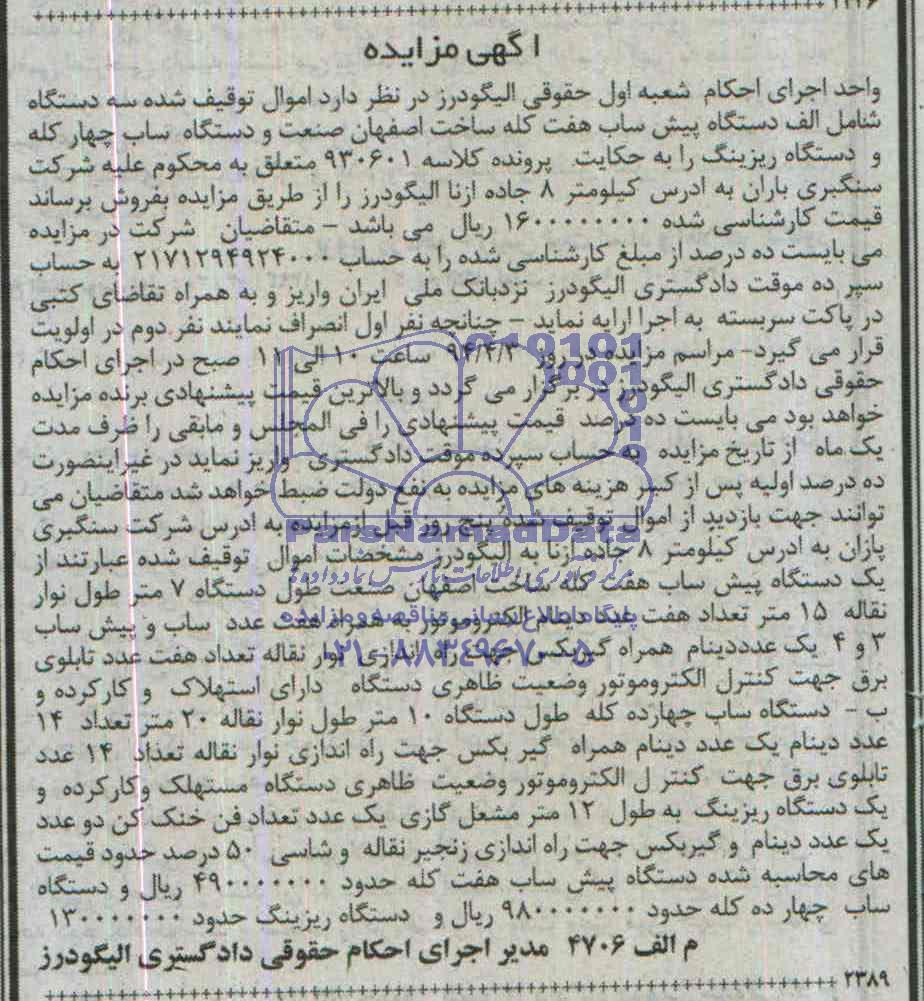 ۱۲۲۶
آگهی مزایده
واحد اجرای احکام شعبه اول حقوقی الیگودرز در نظر دارد اموال توقیف شده سه دستگاه
شامل الف دستگاه پیش ساب هفت کله ساخت اصفهان صنعت و دستگاه ساب چهار کله
و دستگاه ریزینگ را به حکایت پرونده کلاسه ۹۳۰۶۰۱ متعلق به محکوم علیه شرکت
سنگبری باران به ادرس کیلومتر ۸ جاده ازنا الیگودرز را از طریق مزایده بفروش برساند
قیمت کارشناسی شده ۱۶۰۰۰۰۰۰۰۰ ریال می باشد - متقاضیان شرکت در مزایده
می بایست ده درصد از مبلغ کارشناسی شده را به حساب ۲۱۷۱۲۹۴۹۲۴۰۰۰ به حساب
سپر ده موقت دادگستری الیگودرز نزدبانک ملی ایران واریز و به همراه تقاضای کتبی
در پاکت سربسته به اجرا ارایه نماید - چنانچه نفر اول انصراف نمایند نفر دوم در اولویت
قرار می گیرد- مراسم مزایده در روز ۹۴/۴/۳ ساعت ۱۰ الی ۱۱ صبح در اجرای احکام
حقوقی دادگستری الیگودرز در برگزار می گردد و بالاترین قیمت پیشنهادی برنده مزایده
خواهد بود می بایست ده درصد قیمت پیشنهادی را فی المجلس و مابقی را ظرف مدت
یک ماه از تاریخ مزایده به حساب سپرده موقت دادگستری واریز نماید در غیراینصورت
ده درصد اولیه پس از کسر هزینه های مزایده به نفع دولت ضبط خواهد شد متقاضیان می
توانند جهت بازدید از اموال توقیف شده پنج روز قبل ازمزایده به ادرس شرکت سنگبری
پازان به ادرس کیلومتر ۸ جاده ازنا به الیگودرز مشخصات اموال توقیف شده عبارتند از
یک دستگاه پیش ساب هفت کله ساخت اصفهان صنعت طول دستگاه ۷ متر طول نوار
نقاله ۱۵ متر تعداد هفت عدد دینام الکتروموتور به همراه هفت عدد ساب و پیش ساب
۳ و ۴ یک عدددینام همراه گیربکس جهت راه اندازی نوار نقاله تعداد هفت عدد تابلوی
برق جهت کنترل الکتروموتور وضعیت ظاهری دستگاه دارای استهلاک و کارکرده و
ب - دستگاه ساب چهارده کله طول دستگاه ۱۰ متر طول نوار نقاله ۲۰ متر تعداد ۱۴
عدد دینام یک عدد دینام همراه گیر بکس جهت راه اندازی نوار نقاله تعداد ۱۴ عدد
تابلوی برق جهت کنتر ل الکتروموتور وضعیت ظاهری دستگاه مستهلک وکارکرده و
یک دستگاه ریزینگ به طول ۱۲ متر مشعل گازی یک عدد تعداد فن خنک کن دو عدد
یک عدد دینام و گیربکس جهت راه اندازی زنجیر نقاله و شاسی ۵۰ درصد حدود قیمت
های محاسبه شده دستگاه پیش ساب هفت کله حدود ۴۹۰۰۰۰۰۰۰ ریال و دستگاه
ساب چهار ده کله حدود ۹۸۰۰۰۰۰۰۰ ریال و دستگاه ریزینگ حدود ۱۳۰۰۰۰۰۰۰
م الف ۴۷۰۶ مدیر اجرای احکام حقوقی دادگستری الیگودرز
۲۳۸۹
ParsNamadData
پایگاه اطلاع رسانی مناقصه و مزایده
۰۲۱-۸۸۳۴۹۶۷۰-۵